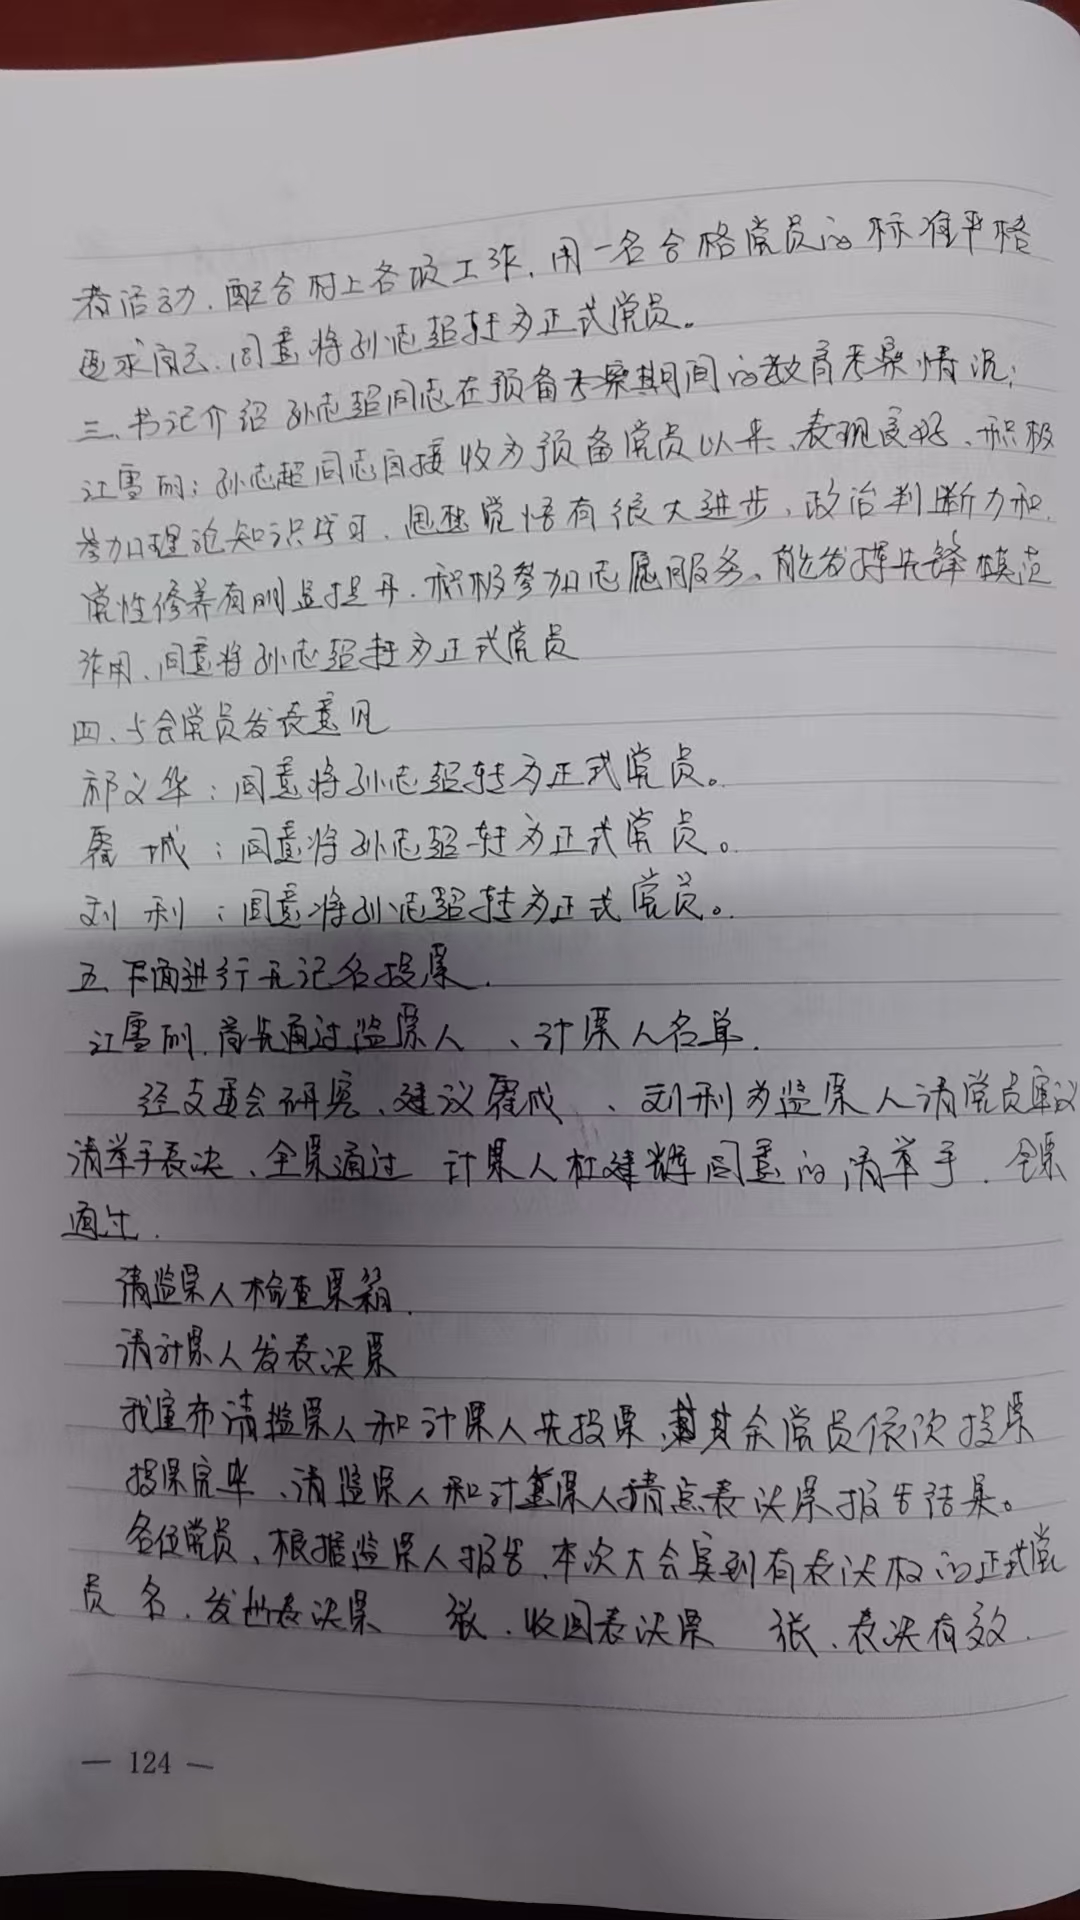 者活动、配合村上各项工作，用一名合格党员的标准严格
要求自己，同意将孙志超转为正式党员。
三、书记介绍孙志超同志在预备考察期间的教育考察情况；
江雪丽：孙志超同志自接收为预备党员以来、表现良好、积极
参加理论知识学习、思想觉悟有很大进步、政治判断力和
党性修养有明显提升、积极参加志愿服务、能发挥先锋模范
作用、同意将孙志超转为正式党员
四、与会党员发表意见
祁义华：同意将孙志超转为正式党员。
翟城：同意将孙志超转为正式党员。
刘利：同意将孙志超转为正式党员。
五、下面进行无记名投票．
江雪丽．首先通过监票人、计票人名单．
经支委会研究、建议翟成、刘利为监票人请党员审议
请举手表决、全票通过 计票人杜建辉同意的请举手．全票
通过．
请监票人检查票箱．
请计票人发表决票
我宣布请监票人和计票人先投票、其余党员依次投票
投票完毕、请监票人和计票人清点表决票报告结果。
各位党员、根据监票人报告、本次大会实到有表决权的正式党
员 名、发出表决票 张、收回表决票 张、表决有效．
— 124 —